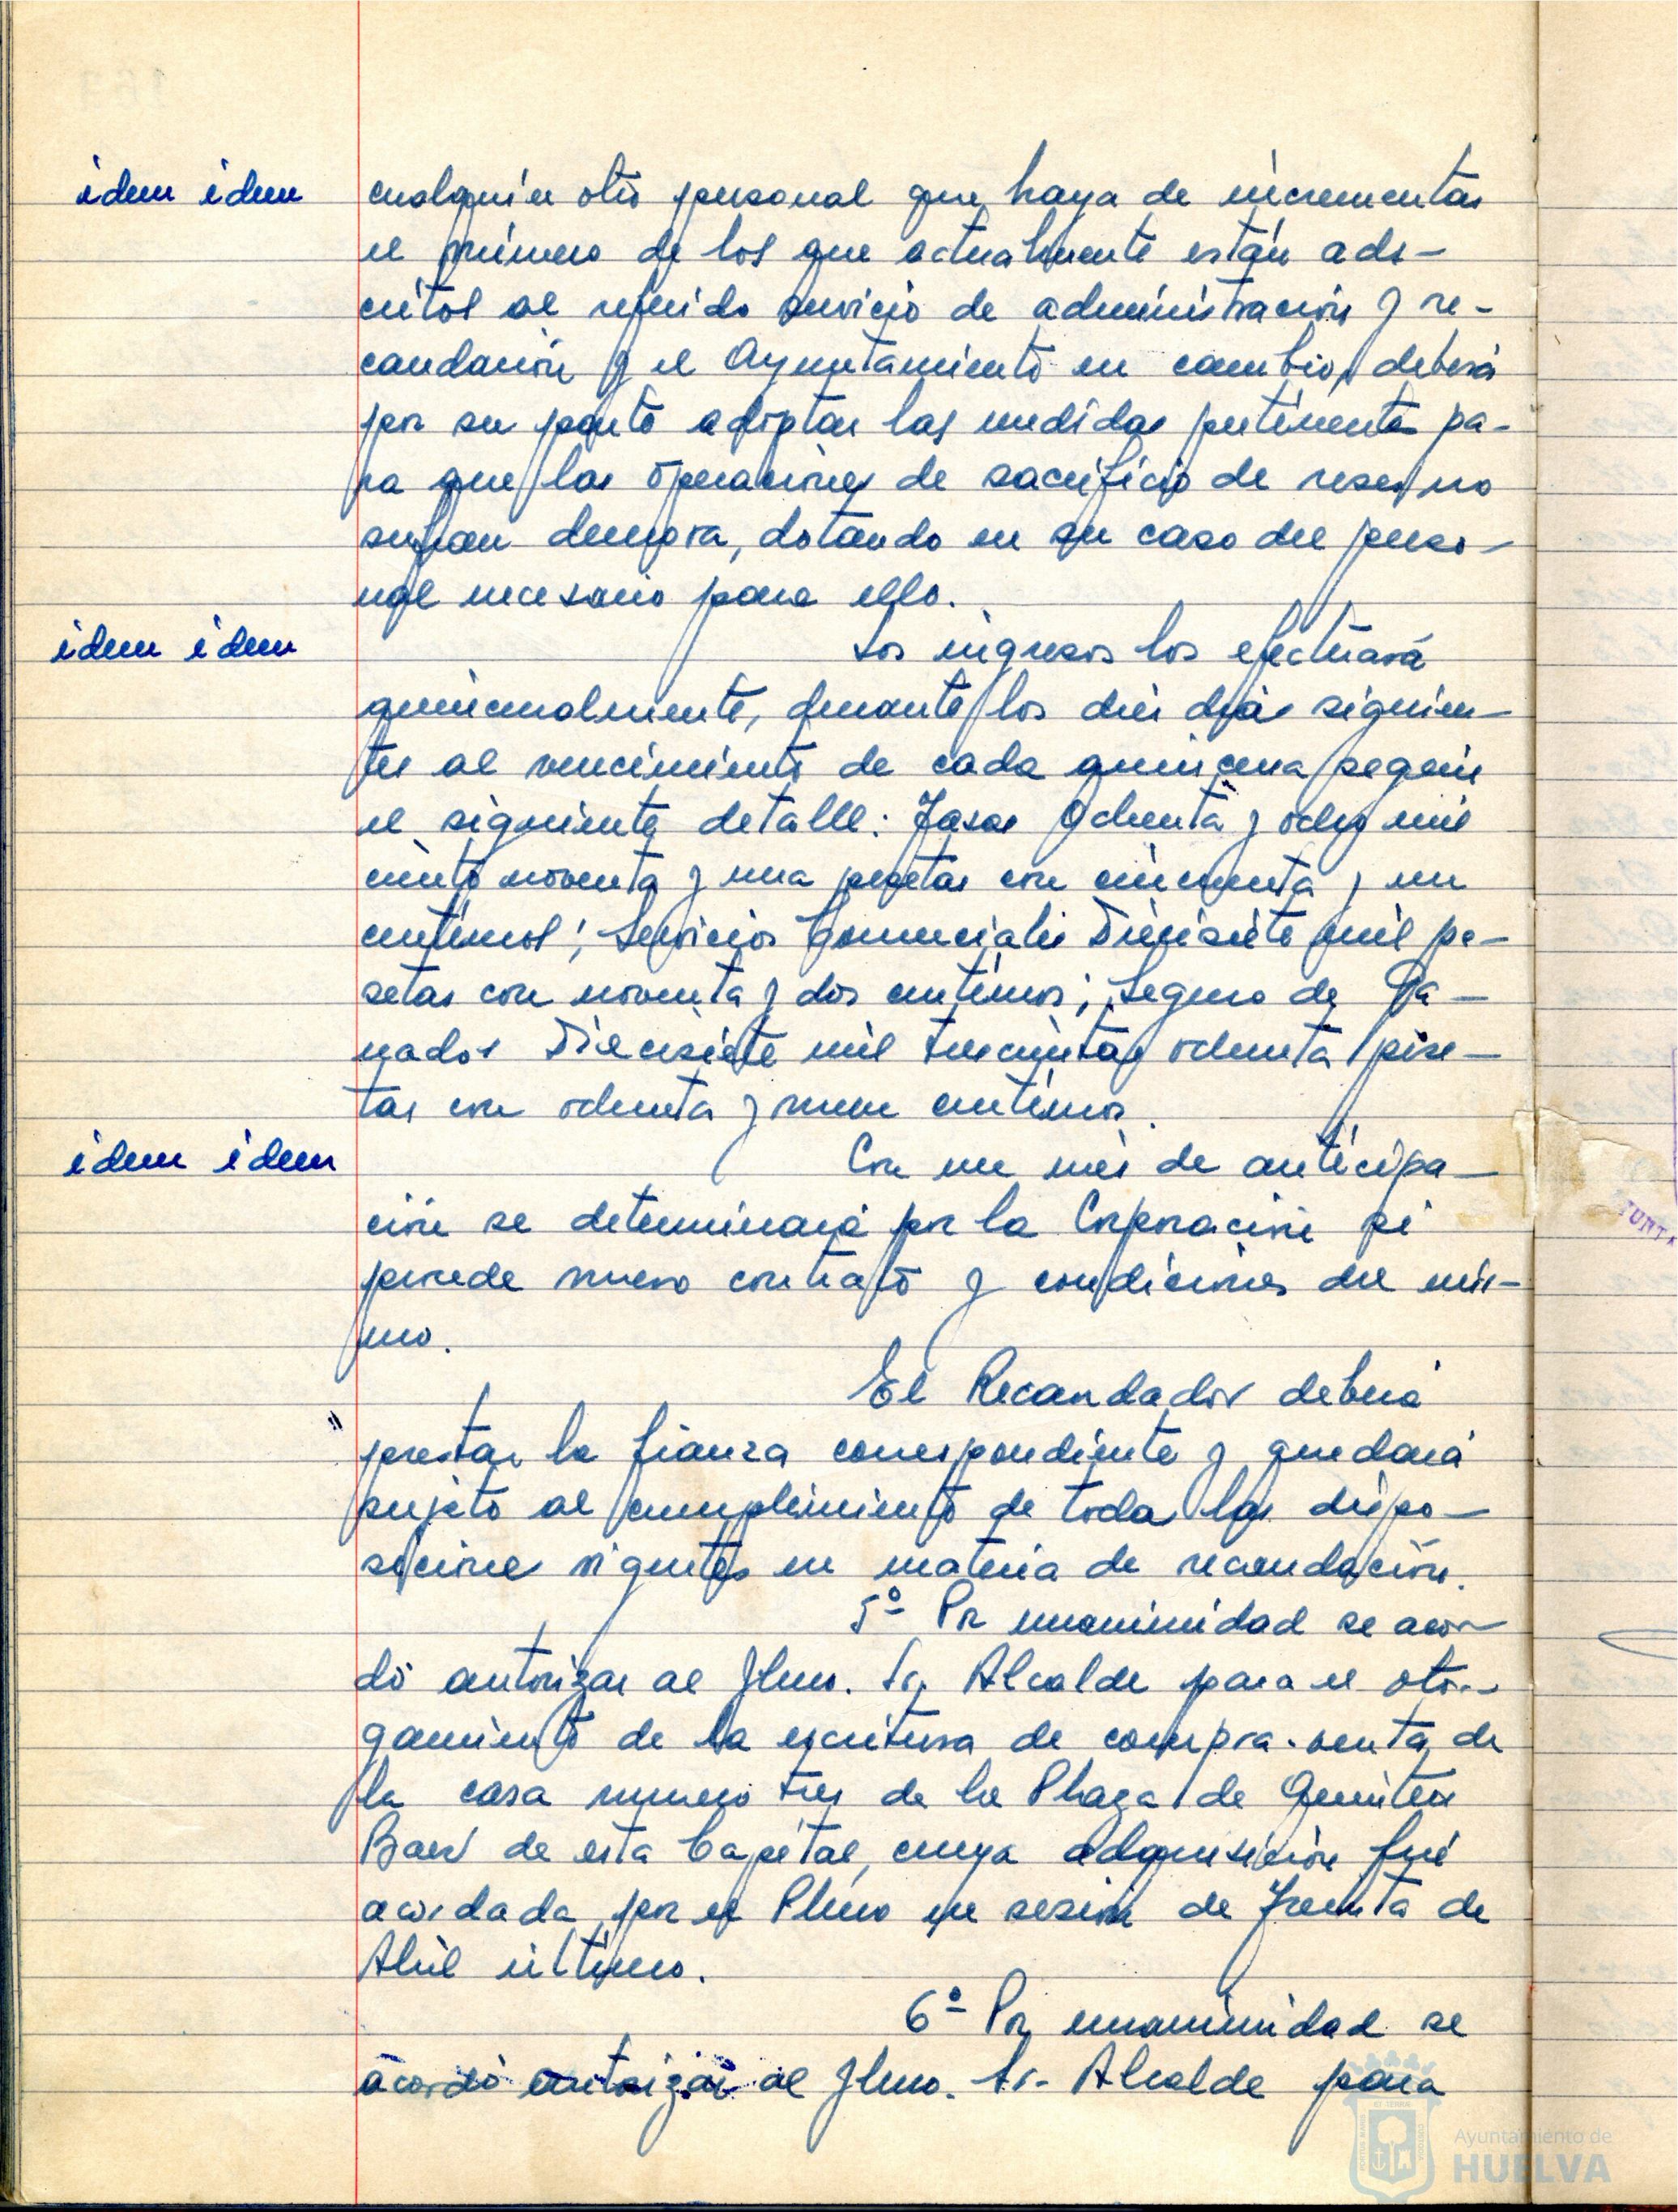 idem idem
cualquier otro personal que haya de incrementar
el número de los que actualmente están ads-
critos al referido servicio de administración y re-
caudación y el Ayuntamiento en cambio, deberá
por su parte adoptar las medidas pertinentes pa-
ra que las operaciones de sacrificio de reses no
sufran demora, dotando en su caso del perso-
nal necesario para ello.
idem idem
Los ingresos los efectuará
quincenalmente, durante los diez días siguien-
tes al vencimiento de cada quincena según
el siguiente detalle: Tasas Ochenta y ocho mil
ciento noventa y una pesetas con cincuenta y un
centimos; Servicios Comerciales Diecisiete mil pe-
setas con noventa y dos centimos; Seguro de Ga-
nados Diecisiete mil trescientas ochenta pese-
tas con ochenta y nueve centimos.
idem idem
Con un mes de anticipa-
ción se determinará por la Corporación si
procede nuevo contrato y condiciones del mis-
mo.
El Recaudador deberá
"
prestar la fianza correspondiente y quedará
sujeto al cumplimiento de todas las dispo-
siciones vigentes en materia de recaudación.
5º Por unanimidad se acor-
dó autorizar al Ilmo. Sr. Alcalde para el otor-
gamiento de la escritura de compra-venta de
la casa numero tres de la Plaza de Quintero
Baez de esta Capital, cuya adquisición fué
acordada por el Pleno en sesión de Treinta de
Abril último.
6º Por unanimidad se
acordó autorizar al Ilmo. Sr. Alcalde para
Ayuntamiento de
HUELVA